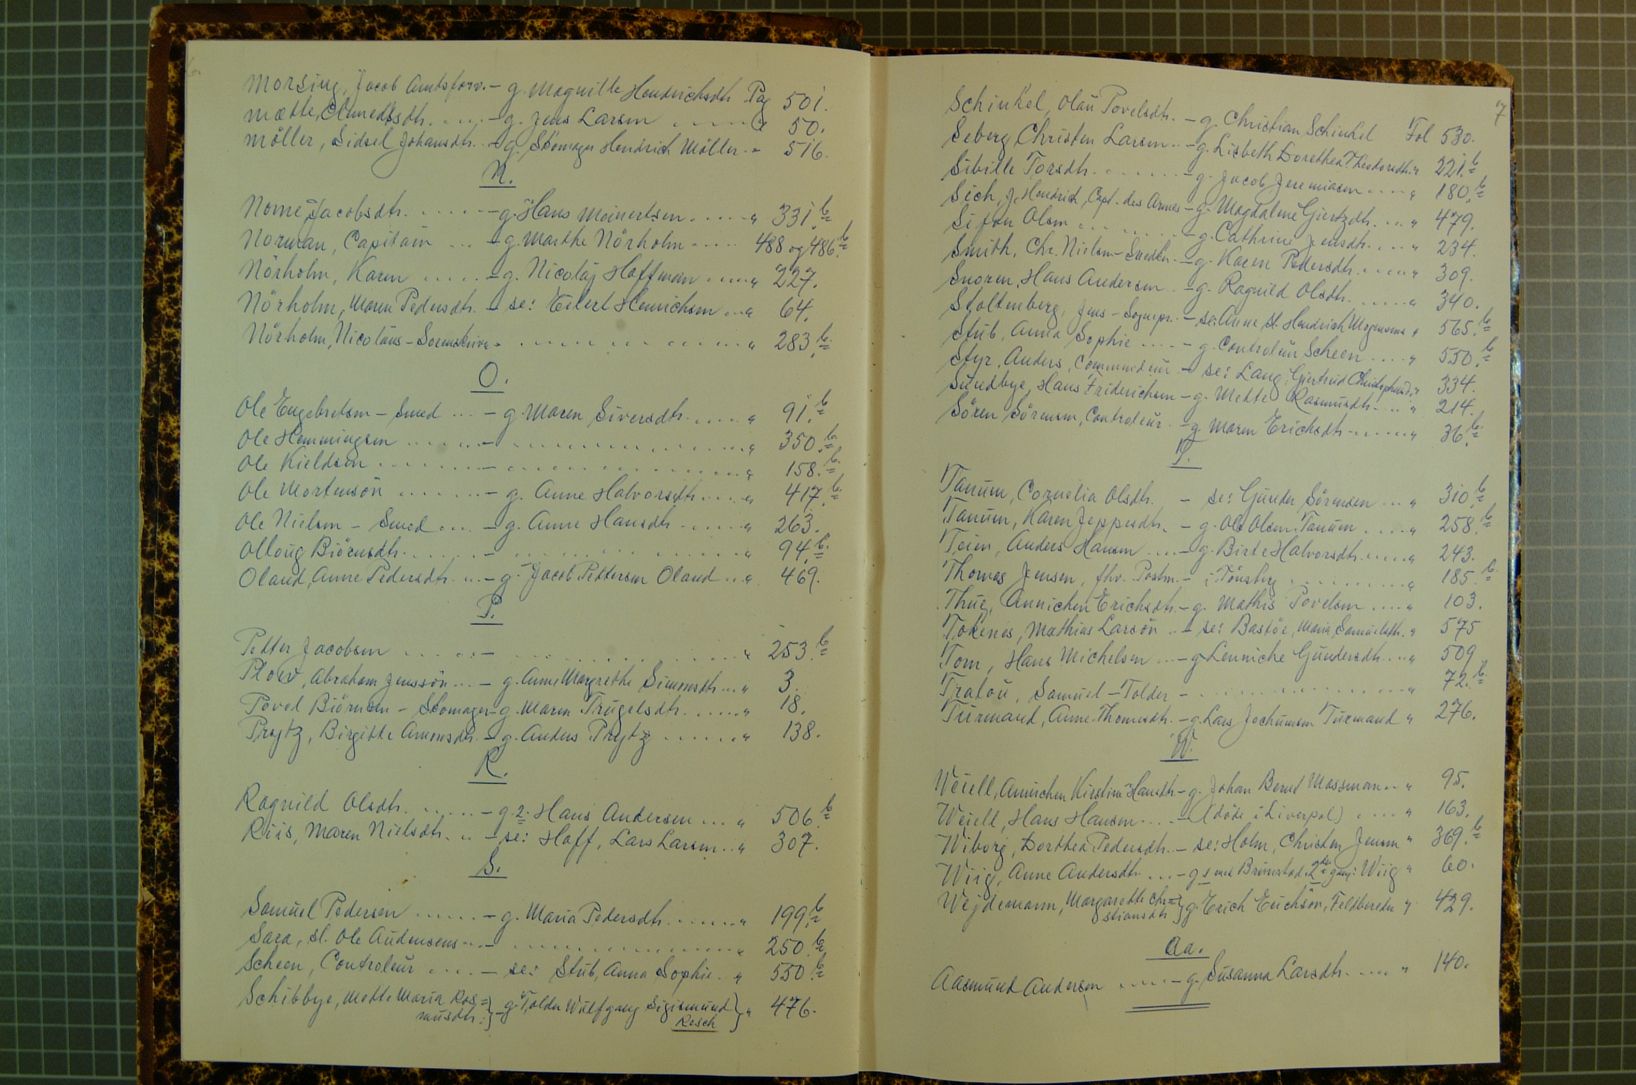 Morsing, Jacob Amtsforv. – g. Magnille Hendrichsdtr. Pag 501.
Mætte, Amundsdtr. . . . . – g. Jens Larsen . . . . . " 50.
Möller, Sidsel Johansdtr. – g. Skomager Hendrich Möller – " 516.
N.
Nome Jacobsdtr. . . . . . – g. Hans Meinertsen . . . . . " 331. b
Norman, Capitain . . . – g. Marthe Nörholm . . . . 488 og 486. b
Nörholm, Karen . . . . . – g. Nicolaj Hoffman . . . . " 227.
Nörholm, Maren Pedersdtr. – se: Eilert Henrichsen . . . " 64.
Nörholm, Nicolaus – Sorenskriver . . . . . . . . . . " 283. b
O.
Ole Engebretsen – Smed . . . – g. Maren Siversdtr. . . . . " 91. b
Ole Hemmingsen . . . . . . – . . . . . . . . . . " 350. b
Ole Kieldsen . . . . . . . – . . . . . . . . . . " 158. b
Ole Mortensön . . . . . . – g. Anne Halvorsdtr. . . . . " 417. b
Ole Nielsen – Smed . . . . – g. Anne Hansdtr. . . . . . " 263.
Olloug Biörnsdtr. . . . . . – . . . . . . . . . . " 94. b
Oland, Anne Pedersdtr. . . . – g. Jacob Pettersen Oland . . . " 469.
P.
Petter Jacobsen . . . . . – . . . . . . . . . . " 253. b
Plow, Abraham Jenssön . . . – g. Anne Margrethe Simensdtr. . . " 3.
Poved Biörnsen – Skomager – g. Maren Trugelsdtr. . . . . . " 18.
Prytz, Birgitte – g. Anders Prytz . . . . . . " 138.
R.
Ragnild Olsdtr. . . . . . – g. 2: Hans Andersen . . . " 506. b
Riis, Maren Nielsdtr. . . – se: Hoff, Lars Larsen . . " 307.
S.
Samuel Pedersen . . . . . . – g. Maria Pedersdtr. . . . . . " 199. b
Sara, sl. Ole Audensens . . . – . . . . . . . . . . " 250. b
Scheen, Controleur . . . . – se: Stub, Anna Sophie . " 550. b
Schibbye, Mette Maria Ras= } – g. Tolder Wulfgang Sigismund } " 476.
musdtr: Resch
7
Schinkel, Olau Povelsdtr. – g. Christian Schinkel Fol 530.
Seberg, Christen Larsen . . – g. Lisbeth Dorethea Theodorsdtr. " 221. b
Sibille Torsdtr. . . . . . . . – g. Jacob Jeremiasen . . . . " 180. b
Sich, J. Hendrich, Capt. des Armes – g. Magdalene Giertzdtr. . . . " 479.
Sifen Olsen . . . . . . . – g. Cathrine Jensdtr. . . . . " 234.
Smith, Chr. Nielsen – Snedk. – g. Karen Pedersdtr. . . . . . " 309.
Snoren, Hans Andersen . . – g. Ragnild Olsdtr. . . . . . " 340.
Stoltenberg, Jens – Sognepr. – se: Anne, sl. Hendrich Mogensens " 565. b
Stub, Anna Sophie . . . . . – g. Controleur Scheen . . . . " 550. b
Styr, Anders, Commandeur – se: Lang, Giertrud Christophersd. " 334.
Sundbye, Hans Friderichsen – g. Mette Rasmusdtr. . . . " 214.
Sören Sörensen, Controleur . – g. Maren Erichsdtr. . . . . . " 36. b
T.
Tanum, Cornelia Olsdtr. – se: Gunder Sörensen . . . " 310. b
Tanum, Karen Jeppesdtr. – g. Ole Olsen Tanum . . . . " 258. b
Teien, Anders Hansen . . . . – g. Birte Halvorsdtr. . . . . . " 243.
Thomas Jensen, fhv. Postm. – i Tönsberg . . . . . . . . " 185. b
Thue, Annichen Erichsdtr. – g. Mathis Povelsen . . . . " 103.
Tokenes, Mathias Larsön . . – se: Bastöe, Maria Samuelsdtr. " 575
Tom, Hans Michelsen . . . – g. Lenniche Gundersdtr. . . . " 509
Tralou, Samuel – Tolder – . . . . . . . . . . " 72. b
Turmand, Anne Thomesdtr. – g. Lars Jochumsen Turmand " 276.
W.
Weiell, Annichen Kirstine Hansdtr – g. Johan Bernd Mossman . . " 95.
Weiell, Hans Hansen . . . . – (döde i Liverpol) . . . . " 163.
Wiborg, Dorthea Pedersdtr. – se: Holm, Christen Jensen " 369. b
Wiig, Anne Andersdtr. . . . – g 2de gang: Wiig " 60.
Wejdemann, Margarethe Chri= } g. Erich Erichsön, Feldbereder " 429.
stiansdtr
Aa.
Aasmund Andersen . . . . . – g. Susanna Larsdtr. . . . . " 140.